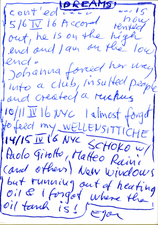 DREAMS
cont'ed
5/6 IV 16 Accord
out, he is on the high
end and I am on the low
end.
Johanna forced her way
into a club, insulted people
and created a ruckus
10/11 IV 16 NYC I almost forgot
to feed my WELLENSITTICHE
14/15 IV 16 NYC SCHOKO w/
Paolo Girotto, Matteo Raini
(and others! New windows
but running out of heating
oil & I forgot where the
oil tank is!